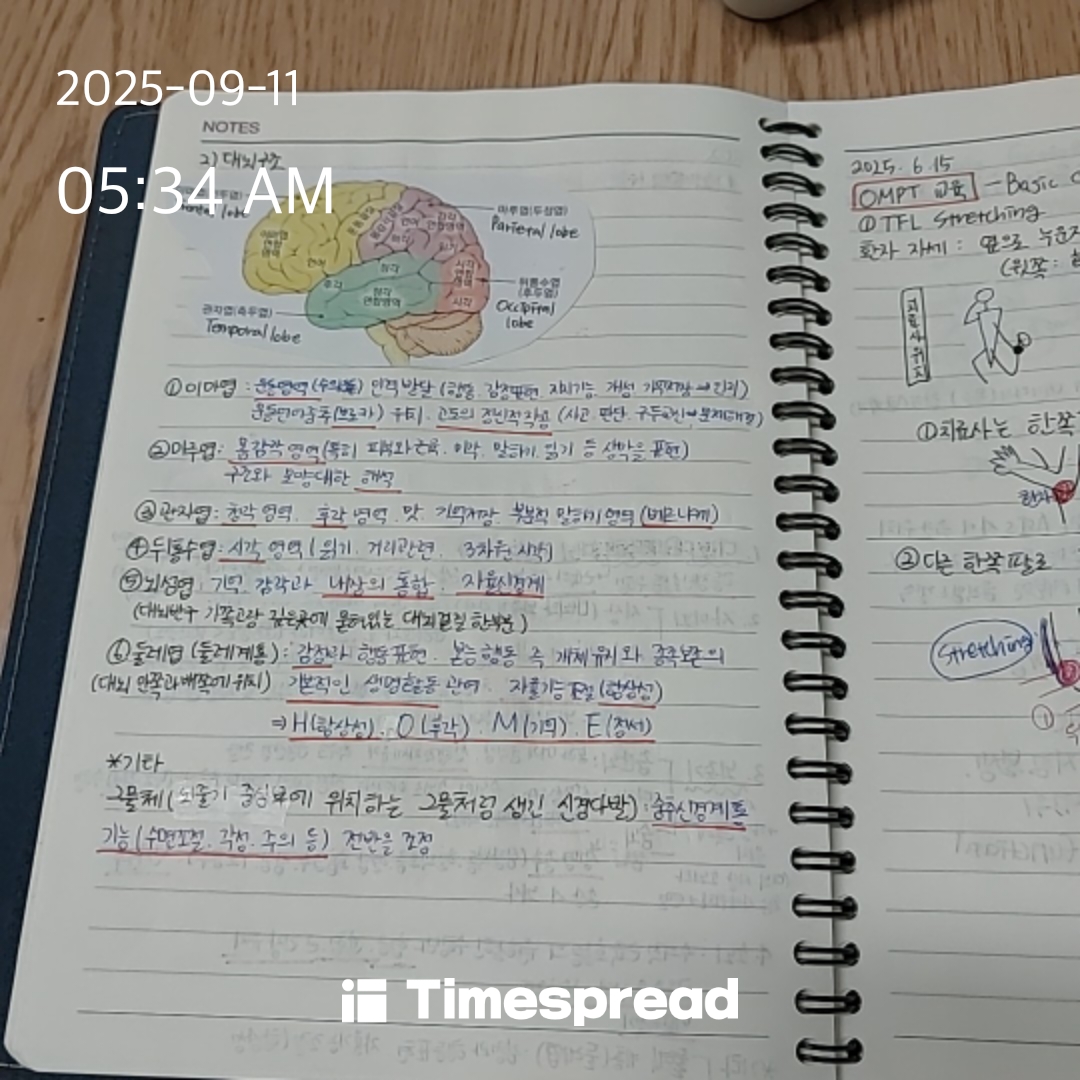 2025-09-11
05:34 AM
NOTES
2) 대뇌구조
lobe
이마엽 연합 영역
운동영역
감각 연합영역
언어
미각
촉각
언어
후각
청각
청각 연합영역
시각 연합 영역
시각
마루엽(두정엽)
Parietal lobe
뒤통수엽 (후두엽)
Occipital lobe
관자엽(측두엽)
Temporal lobe
① 이마엽 : 운동영역(수의운동) 인격발달 (행동. 감정표현. 지적기능. 개성. 기억저장 → 인지)
운동언어중추(브로카) 위치. 고도의 정신적작용 (사고. 판단.
② 마루엽: 몸감각 영역(특히 피부와 근육. 미각. 말하기. 읽기 등 생각을 표현)
구조와 모양대한 해석
③ 관자엽: 청각 영역. 후각 영역. 맛. 기억저장. 부분적 말하기 영역 (베르니케)
④ 뒤통수엽: 시각 영역 (읽기. 거리관련. 3차원 시각)
⑤ 뇌섬엽: 기억. 감각과 내장의 통합. 자율신경계
(대뇌반구 가쪽고랑 깊은곳에 묻혀있는 대뇌겉질 한부분)
⑥ 둘레엽 (둘레계통): 감정과 행동표현. 본능행동 즉 개체유지와 종족보존의
(대뇌 안쪽과 배쪽에 위치) 기본적인 생명활동 관여. 자율기능 조절 (항상성)
⇒ H(항상성). O(후각). M(기억). E(정서)
*기타
그물체 (뇌줄기 중심부에 위치하는 그물처럼 생긴 신경다발) : 중추신경계통
기능 (수면조절. 각성. 주의 등) 전반을 조정
2025. 6.15
OMPT 교육 - Basic
① TFL Stretching
환자 자세 : 옆으로 누운자
치료사위치
① 치료사는 한쪽
환자
② 다른 한쪽 팔로
Stretching
①
Timespread